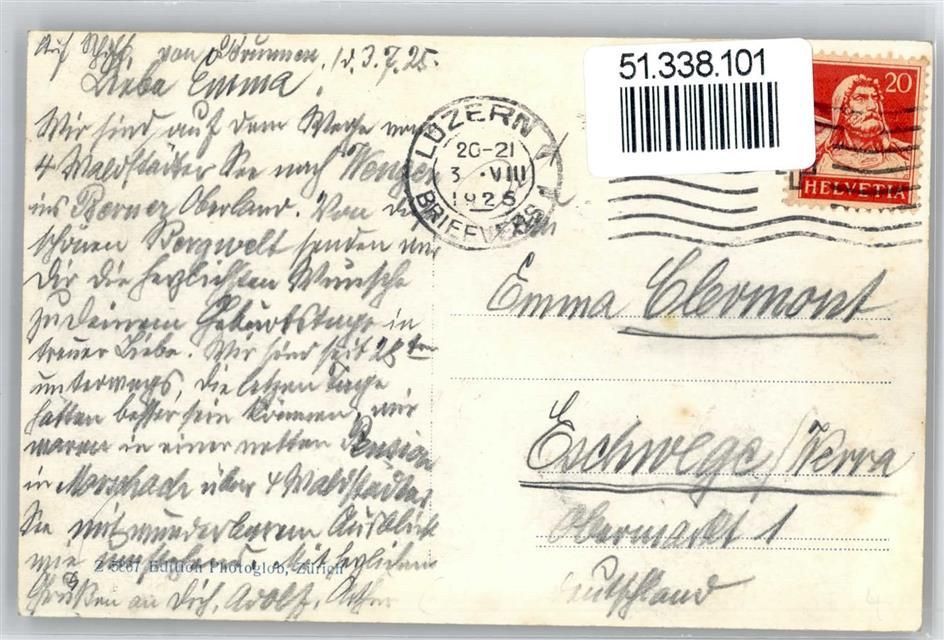 Auf Schiff, von Brunnen, d. 3.7.25.
Liebe Emma!
Wir sind auf dem Wege vom
4 Waldstätter See nach Wengen
ins Berner Oberland. Von der
schönen Bergwelt senden wir
Dir die herzlichsten Wünsche
zu Deinem Geburtstage in
treuer Liebe. Wir sind seit 28ten
unterwegs, die letzten Tage
hätten besser sein können, wir
waren in einer netten Pension
in Morschach über 4 Waldstädter
See mit wunderbarem Ausblick
wie umstehend. Mit herzlichen
Grüßen an Dich, Adolf,
Z 5867 Edition Photoglob, Zürich
LUZERN
20-21
3. VIII
1925
BRIEFVERS
51.338.101
20
HELVETIA
Emma Clermont
Eschwege/Werra
Obermarkt 1
Deutschland
4